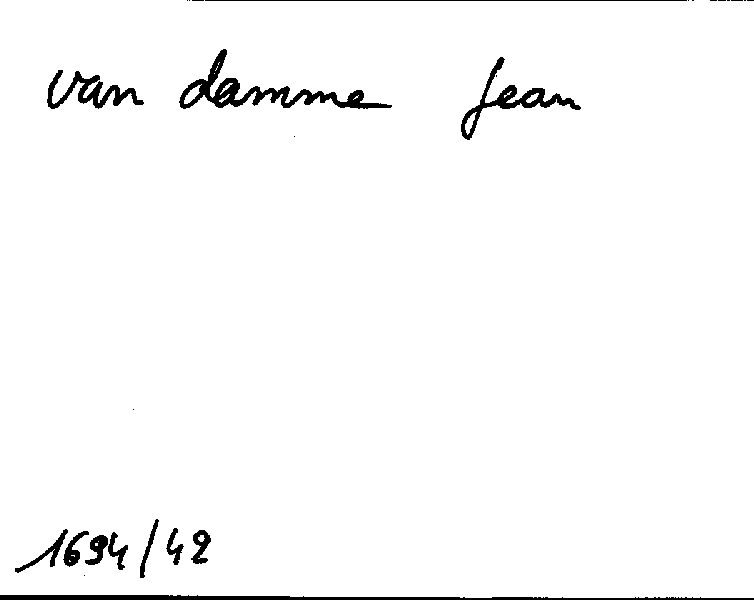 van damme Jean
1694/42